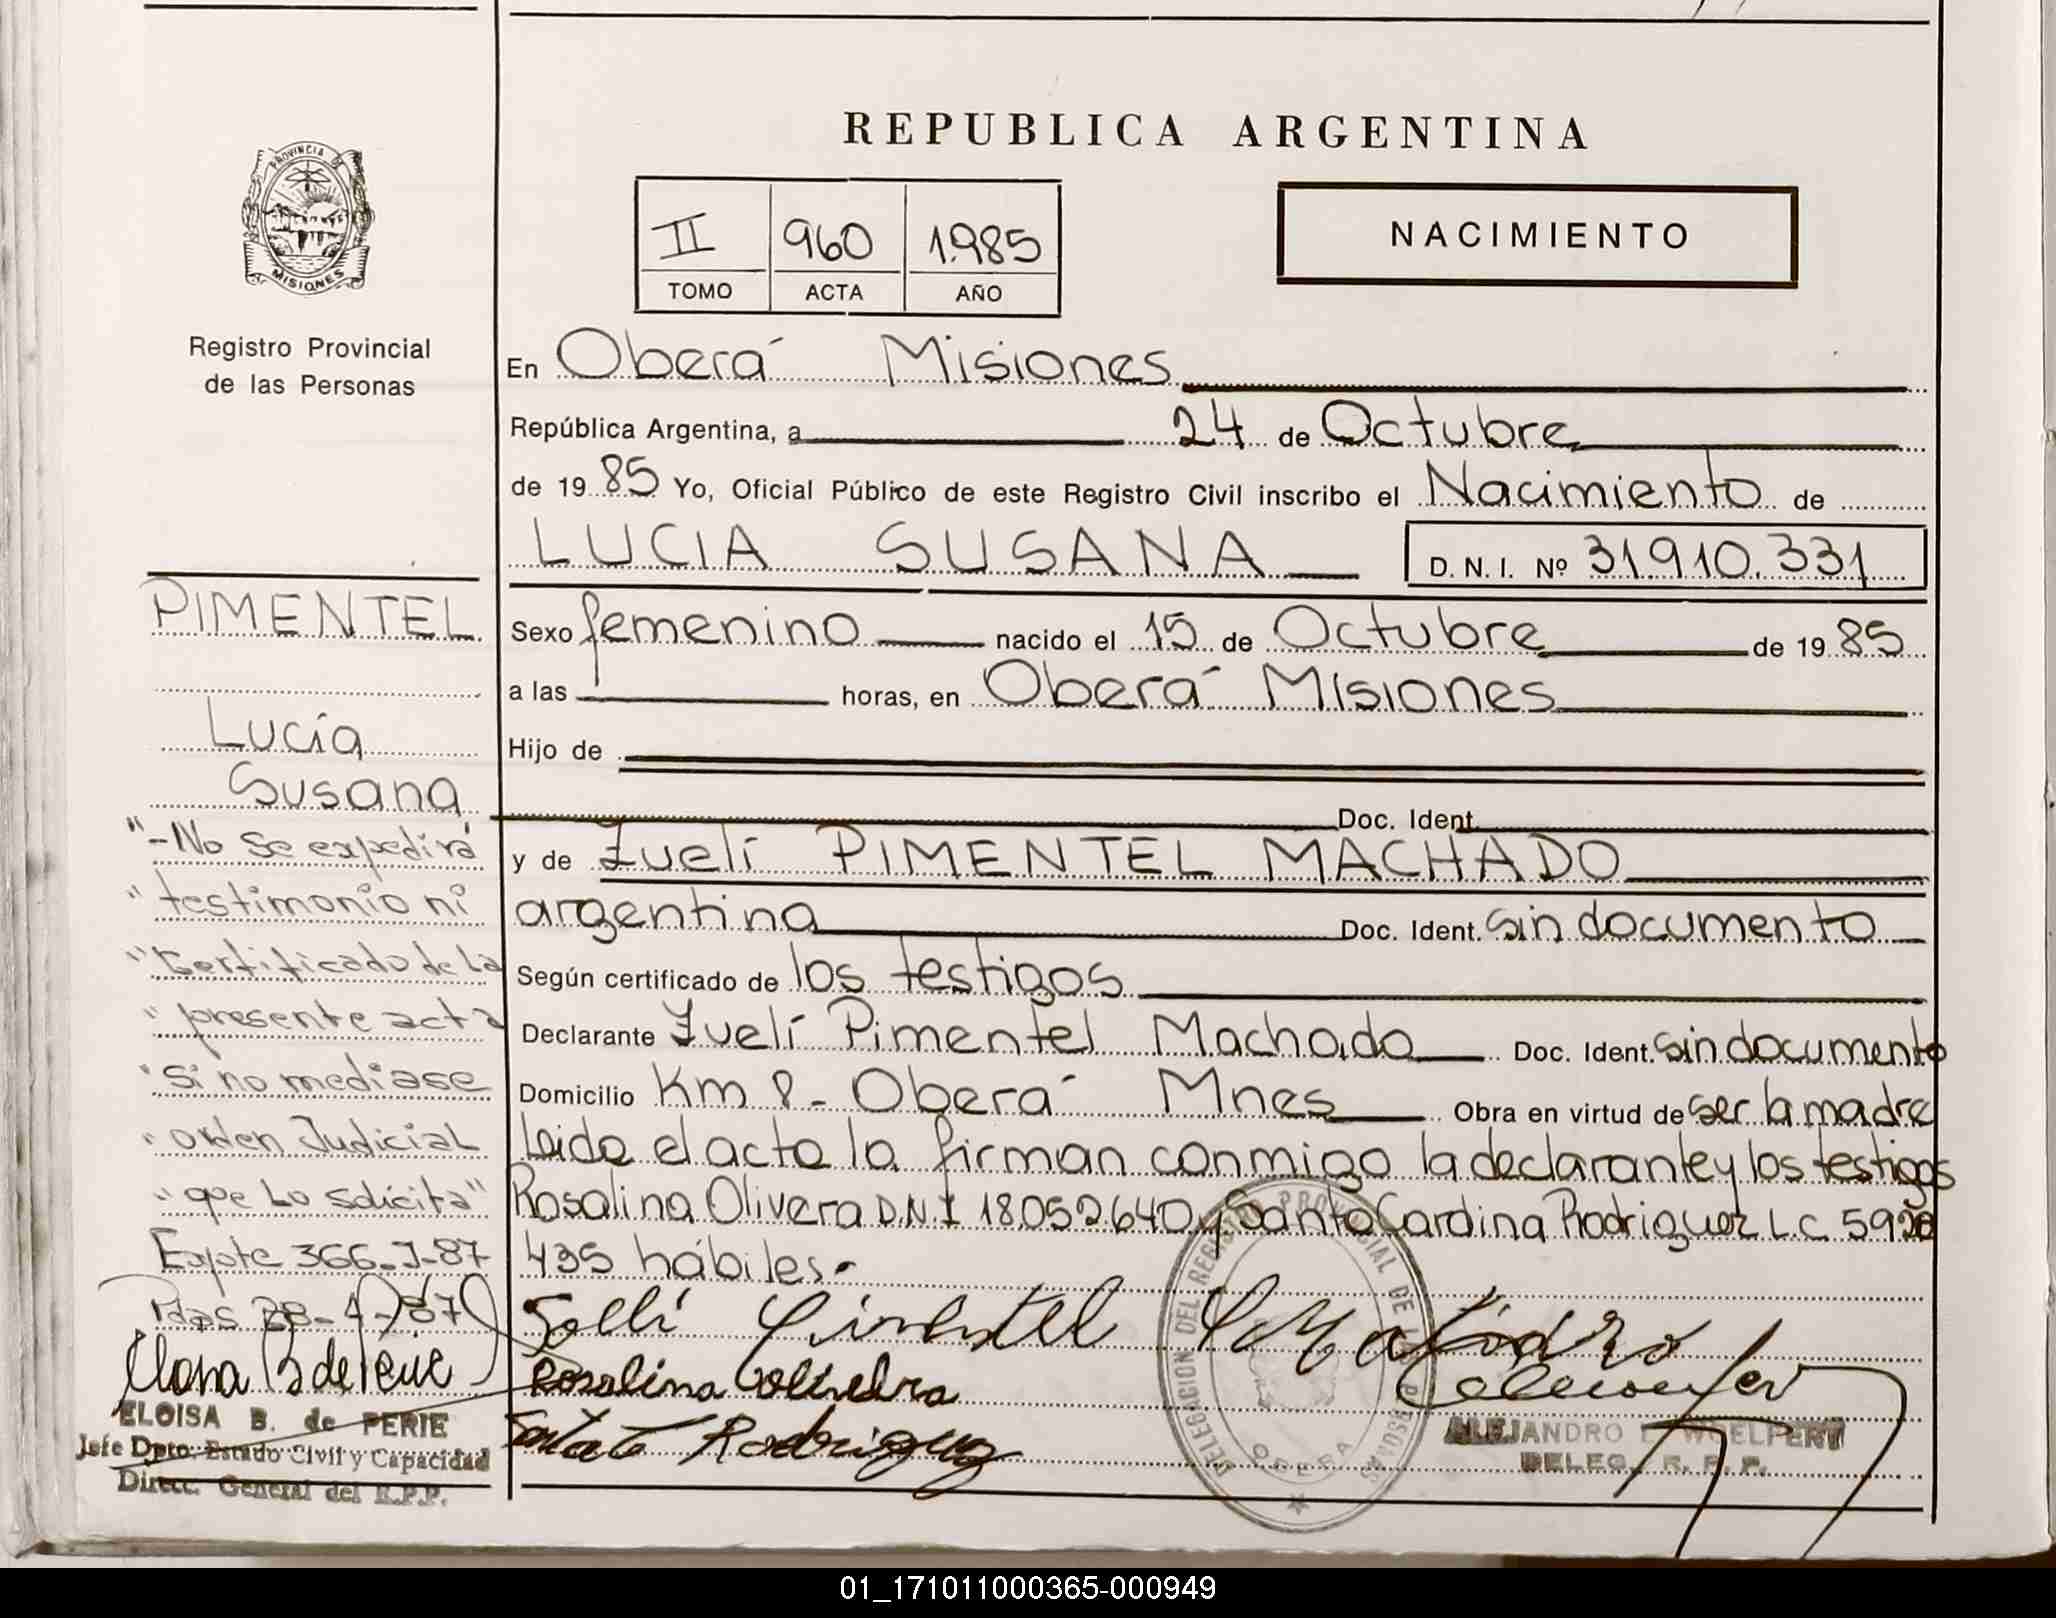 REPUBLICA ARGENTINA
PROVINCIA DE
MISIONES
Registro Provincial
de las Personas
II 960 1.985
TOMO ACTA AÑO
NACIMIENTO
En Oberá Misiones
República Argentina, a 24 de Octubre
de 19 85 Yo, Oficial Público de este Registro Civil inscribo el Nacimiento de
LUCIA SUSANA D. N. I. Nº 31.910.331
Sexo femenino nacido el 15 de Octubre de 19 85
a las horas, en Oberá Misiones
Hijo de
Doc. Ident.
y de Zuelí PIMENTEL MACHADO
argentina Doc. Ident. sin documento
Según certificado de los testigos
Declarante Zuelí Pimentel Machado Doc. Ident. sin documento
Domicilio Km 8- Oberá Mnes Obra en virtud de ser la madre
Leida el acta la firman conmigo la declarante y los testigos
Rosalina Olivera D.N.I 18052640 y Santa Cardina Rodriguez L.C. 5920
435 hábiles.
Pimentel
Rosalina
Rodriguez
DELEGACION DEL REGISTRO PROVINCIAL DE LAS PERSONAS
OBERA
ALEJANDRO WOELPERT
DELEG. R. P. P.
PIMENTEL
Lucía
Susana
"-No se expedirá
"testimonio ni
"Certificado de la
"presente acta
"si no mediase
"orden Judicial
"que lo solicita"
Expte 366-J-87
Pdas 28-4-87
ELOISA B. de PERIE
Jefe Dpto. Estado Civil y Capacidad
Direcc. General del R.P.P.
01_171011000365-000949